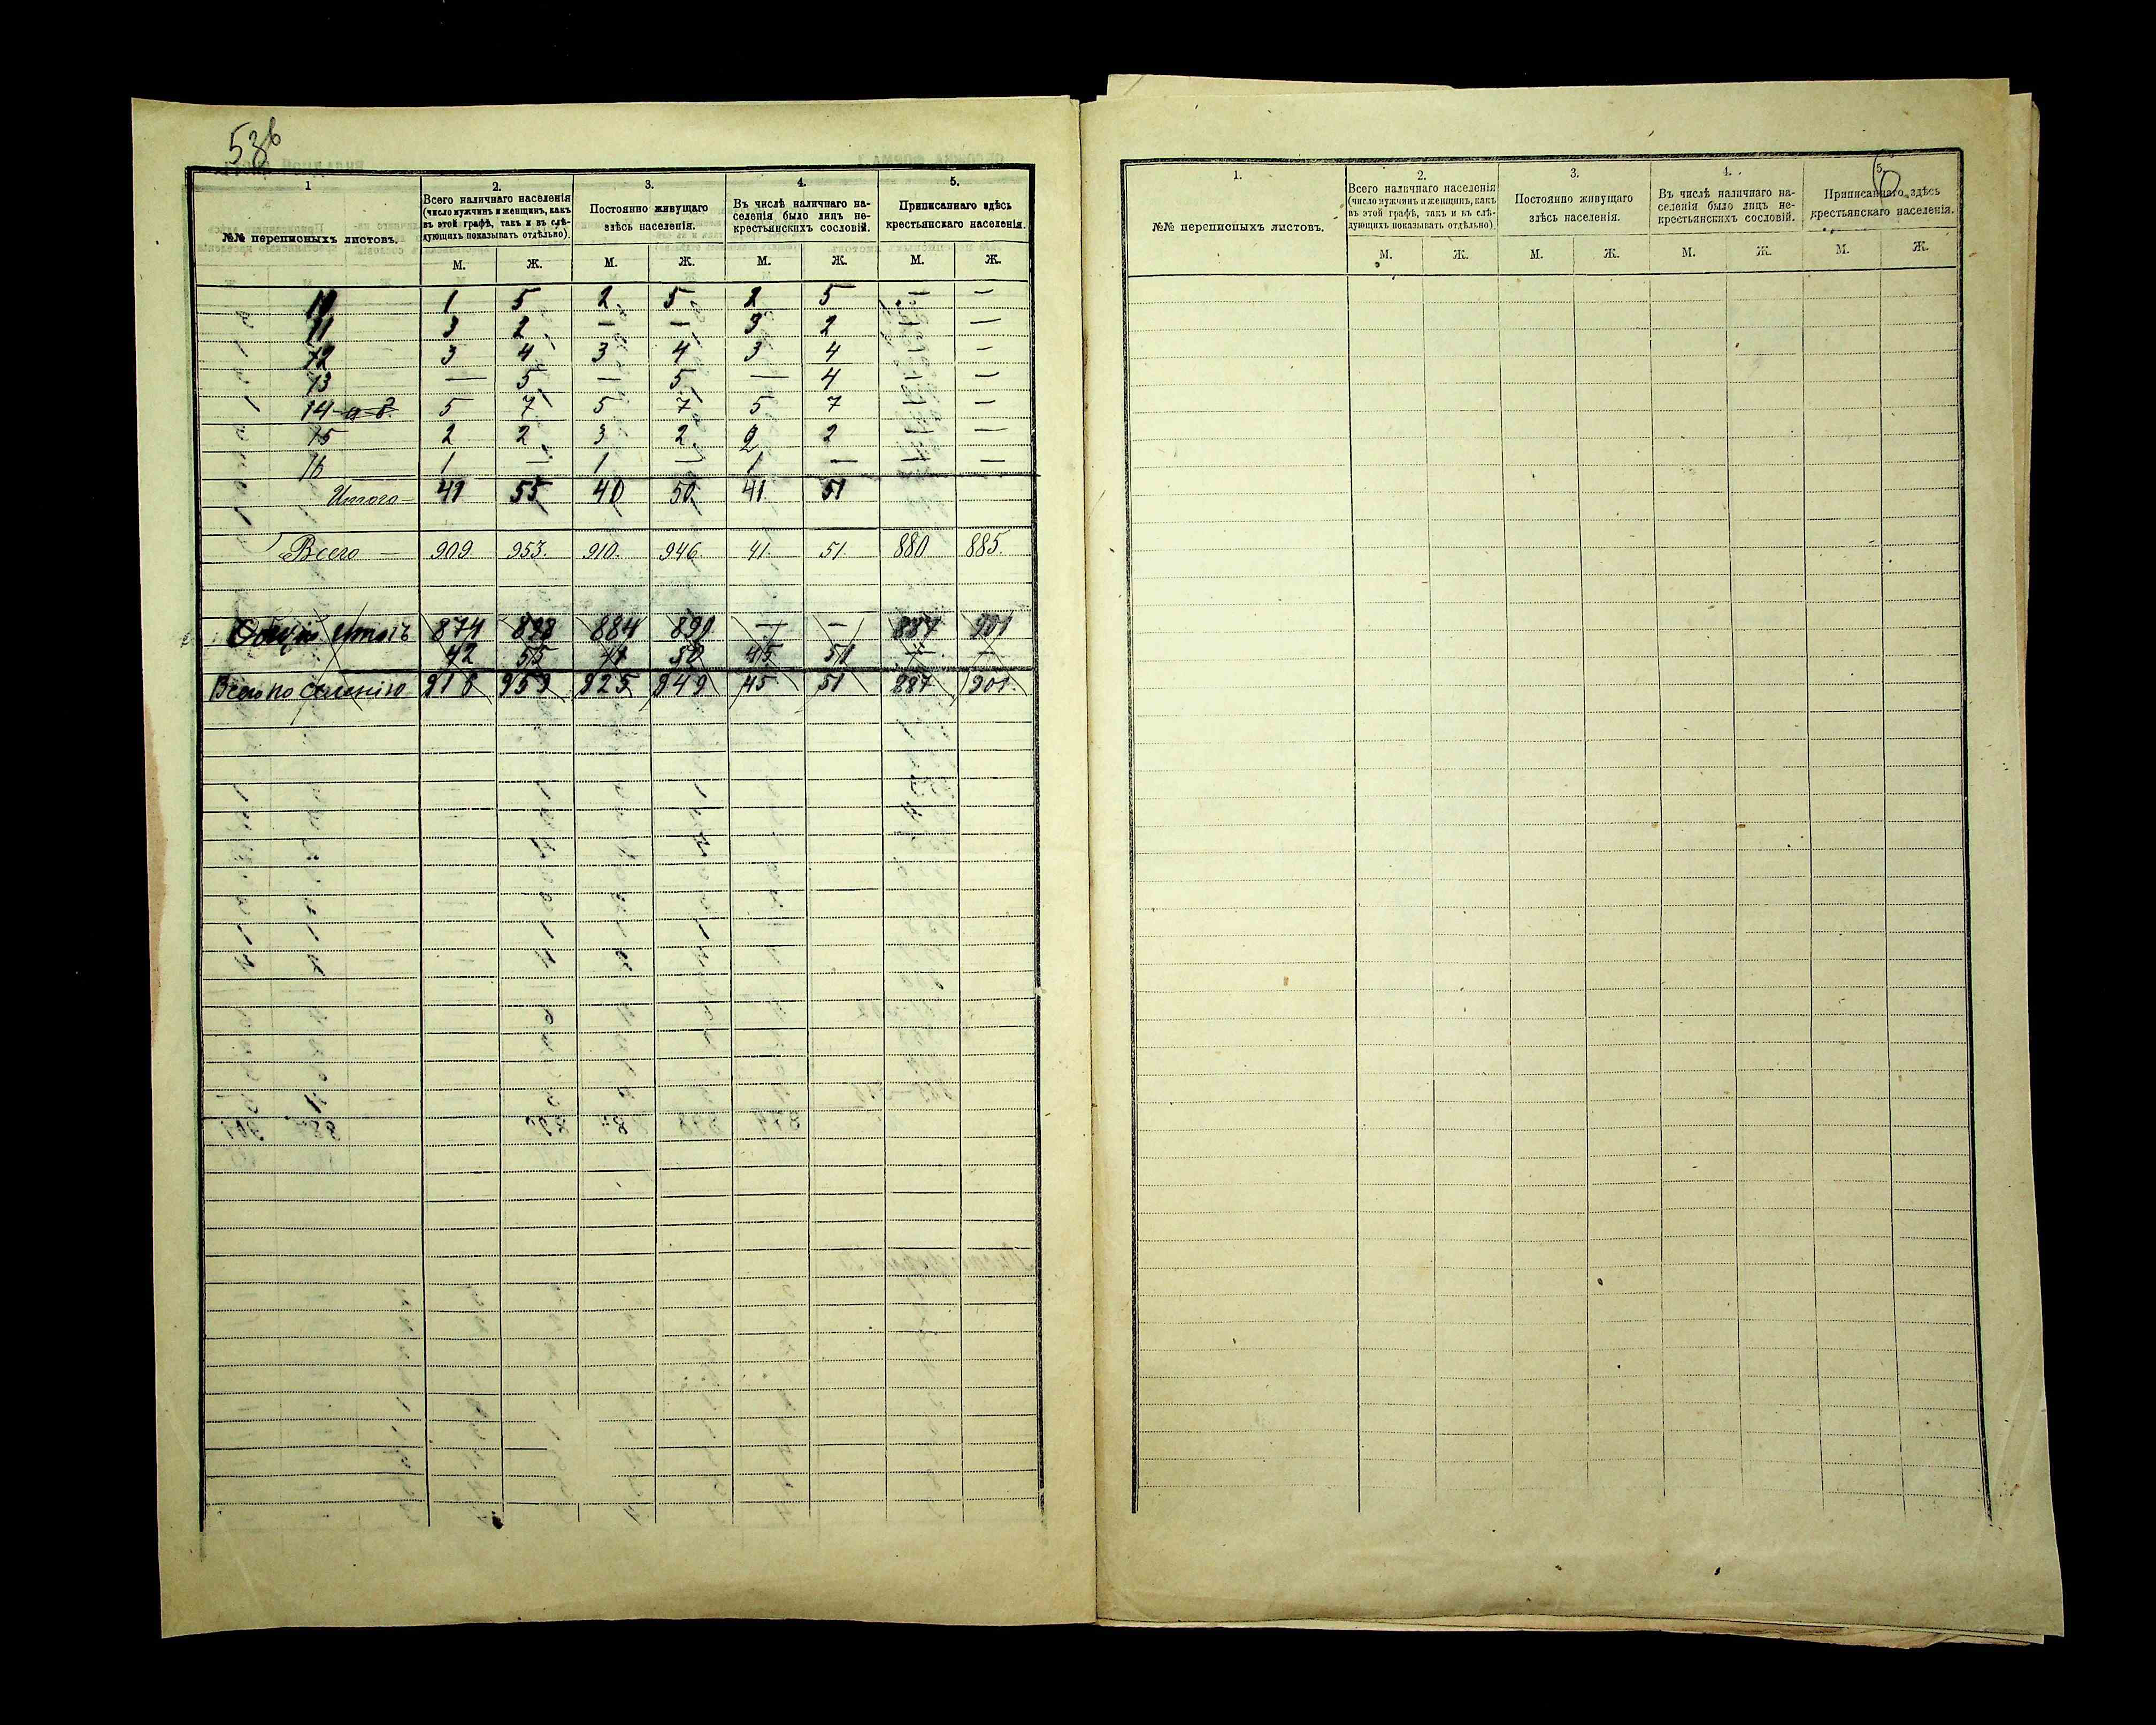 53б
1
№№ переписныхъ листовъ.
2.
Всего наличнаго населенія
(число мужчинъ и женщинъ, какъ
въ этой графѣ, такъ и въ слѣ-
дующихъ показывать отдѣльно).
3.
Постоянно живущаго
здѣсь населенія.
4.
Въ числѣ наличнаго на-
селенія было лицъ не-
крестьянскихъ сословій.
5.
Приписаннаго здѣсь
крестьянскаго населенія.
М. Ж. М. Ж. М. Ж. М. Ж.
10 1 5 2 5 2 5 — —
11 3 2 — — 3 2 — —
12 3 4 3 4 3 4 — —
13 — 5 — 5 — 4 — —
14 5 7 5 7 5 7 — —
15 2 2 3 2 2 2 — —
16 1 — 1 — 1 — — —
Итого — 41 55 40 50 41 51
Всего — 909 953. 910. 946. 41. 51. 880. 885.
874 898 884 890 — — 887 901
42 55 41 50 45 51 — —
Всего по селенію 916 953 925 949 45 51 887 901
1.
№№ переписныхъ листовъ.
2.
Всего наличнаго населенія
(число мужчинъ и женщинъ, какъ
въ этой графѣ, такъ и въ слѣ-
дующихъ показывать отдѣльно)
3.
Постоянно живущаго
здѣсь населенія.
4.
Въ числѣ наличнаго на-
селенія было лицъ не-
крестьянскихъ сословій.
5.
Приписаннаго здѣсь
крестьянскаго населенія.
М. Ж. М. Ж. М. Ж. М. Ж.